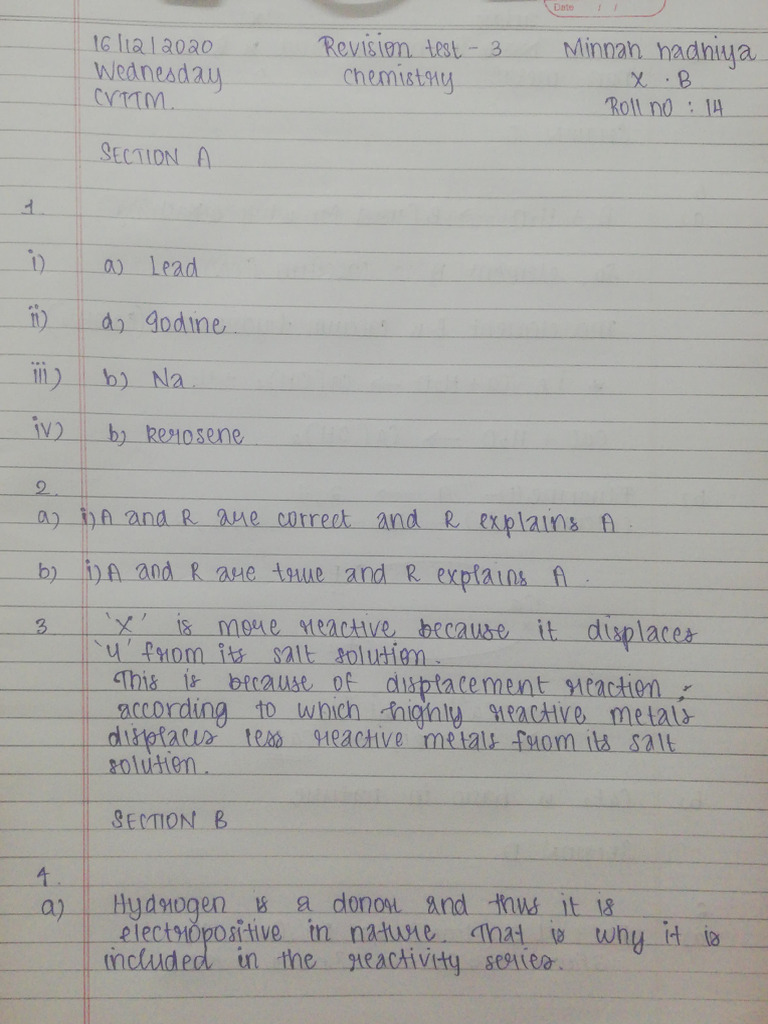 Date / /
16/12/2020 Revision test - 3 Minnah nadhiya
Wednesday Chemistry X . B
CVTTM. Roll no : 14
SECTION A
1.
i) a) Lead
ii) d) Iodine.
iii) b) Na.
iv) b) kerosene
2.
a) i) A and R are correct and R explains A.
b) i) A and R are true and R explains A.
3 'X' is more reactive because it displaces
'Y' from its salt solution.
This is because of displacement reaction,
according to which highly reactive metals
displaces less reactive metals from its salt
solution.
SECTION B
4.
a) Hydrogen is a donor and thus it is
electropositive in nature. That is why it is
included in the reactivity series.